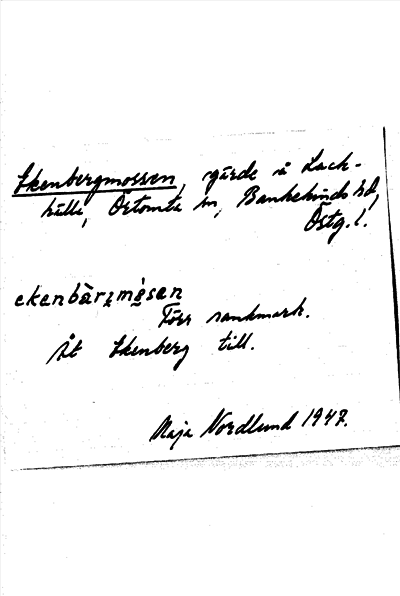 Ekenbergmossen, gärde å Lack-
kulla, Örtomta sn, Bankekinds hd,
Östg. l.
ekenbärʒmåsen
Förr sankmark.
Åt Ekenberg till.
Maja Nordlund 1947.